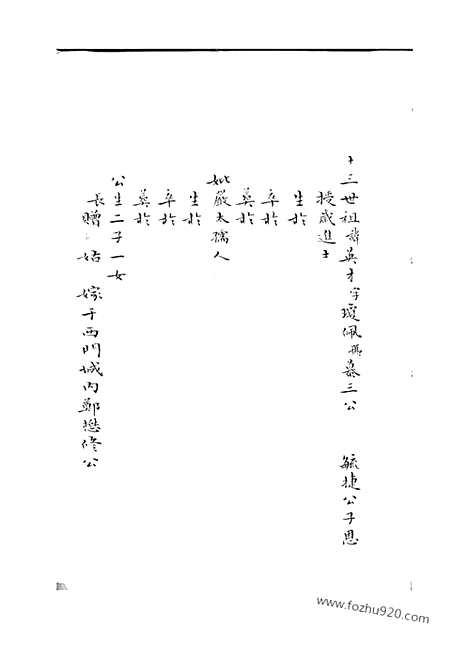 十三世祖諱英才字瓊佩號慕三公 毓捷公子恩
授歲進士
生於
卒於
葬於
妣嚴太孺人
生於
卒於
葬於
公生二子一女
長贈 姑 嫁于西門城内鄭懋修公
www.fozhu920.com